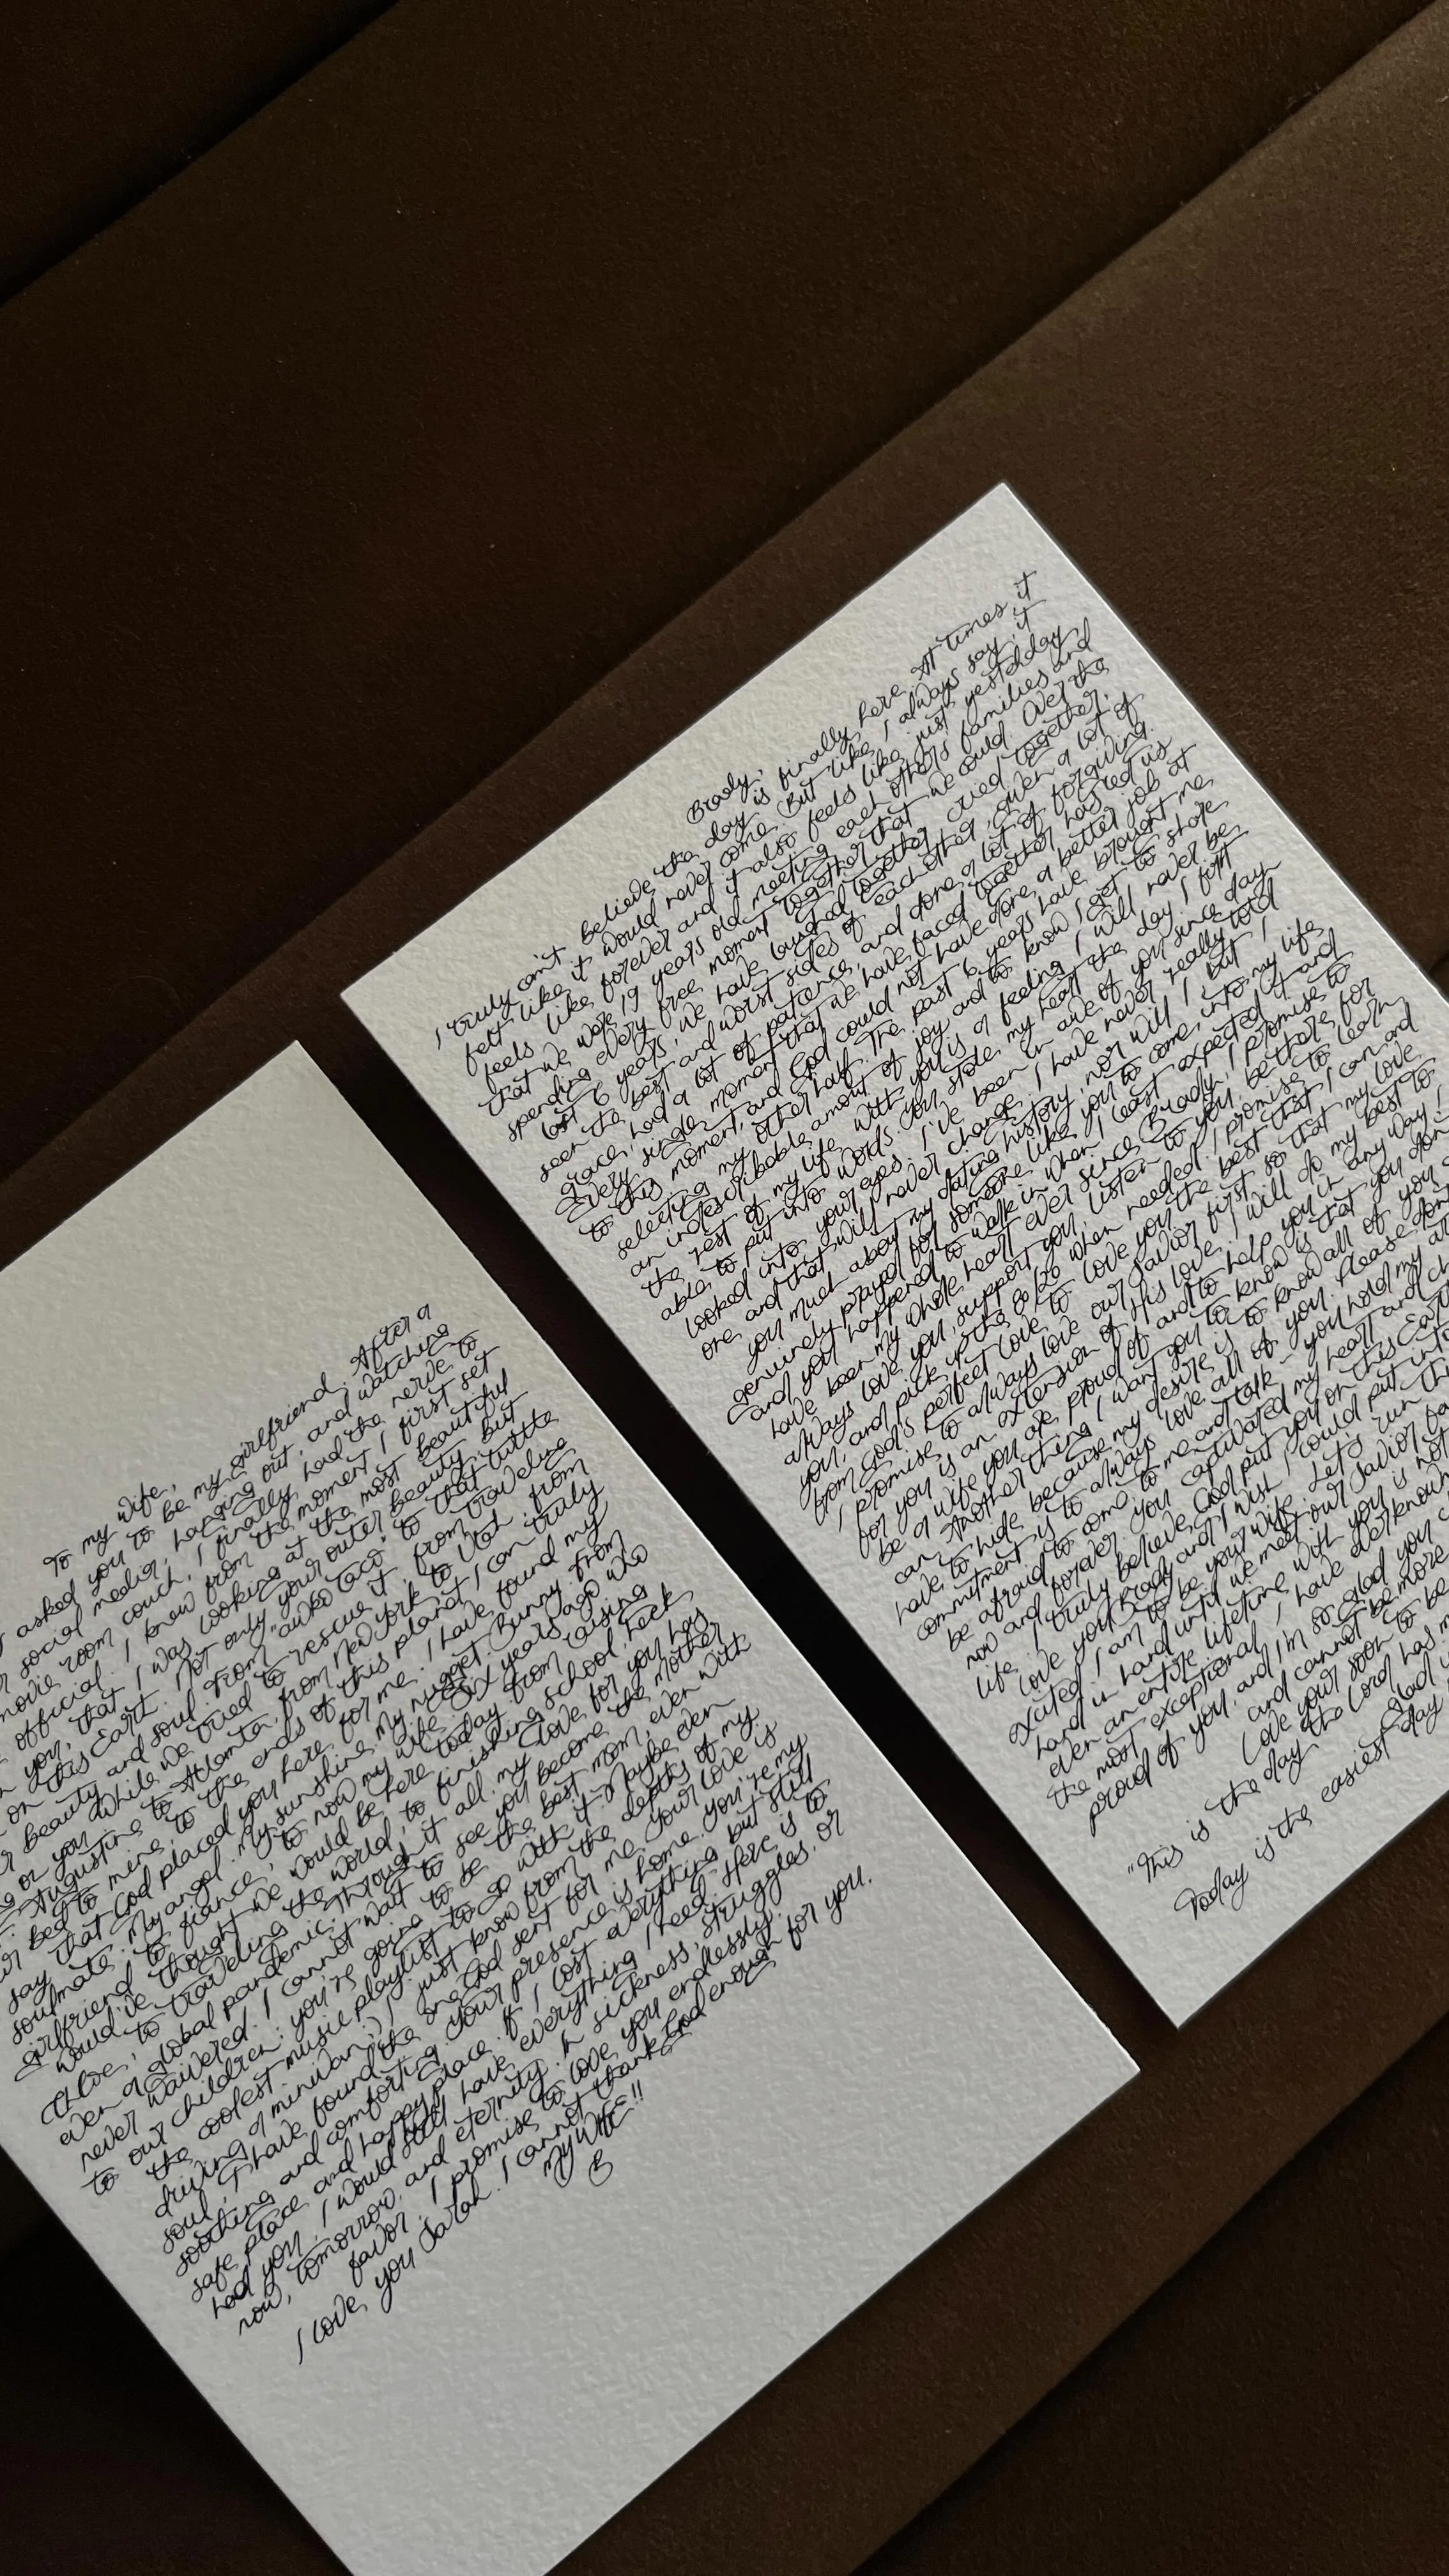 To my wife,
asked you to be my girlfriend. After a
social media, hanging out, and watching
movie room couch, I finally had the nerve to
official. I knew from the moment I first set
on you, that I was looking at the most beautiful
on this Earth. Not only your outer beauty, but
beauty and soul. From "awko taco" to that turtle
or you while we tried to rescue it, from traveling
Augustine to Atlanta, from New York to Utah, from
bed to mine, to the ends of this planet, I can truly
say that God placed you here for me. I have found my
soulmate. My angel. My sunshine. My nugget. Bunny. From
girlfriend to fiance, to now my wife. Six years ago who
would've thought we would be here today from raising
Chloe, to traveling the world, to finishing school, heck
even a global pandemic. Through it all my love for you has
never waivered. I cannot wait to see you become the mother
to our children. You're going to be the best mom, even with
the coolest music playlist to go with it. Maybe even
driving a minivan :) I just know from the depths of my
soul, I have found the one God sent for me. Your love is
soothing and comforting. Your presence is home. You're my
safe place and happy place. If I lost everything but still
had you, I would still have everything I need. Here is to
now, tomorrow, and eternity. In sickness, struggles, or
favor. I promise to love you endlessly.
I love you Sarah. I cannot thank God enough for you.
MY WIFE!!
B
Brady,
I truly can't believe the day is finally here. At times it
felt like it would never come. But like I always say, it
feels like forever and it also feels like just yesterday
that we were 19 years old meeting each others families and
spending every free moment together that we could. Over the
last 6 years, we have laughed together, cried together,
seen the best and worst sides of each other, given a lot of
grace, had a lot of patience, and done a lot of forgiving.
Every single moment that we have faced together has led us
to this moment, and God could not have done a better job at
selecting my other half. The past 6 years have brought me
an indescribable amount of joy and to know I get to share
the rest of my life with you is a feeling I will never be
able to put into words. You stole my heart the day I first
looked into your eyes. I've been in awe of you since day
one and that will never change. I have never really told
you much about my dating history, nor will I but I
genuinely prayed for someone like you to come into my life
and you happened to walk in when I least expected it and
have been my whole heart ever since. Brady, I promise to
always love you, support you, listen to you, be there for
you, and pick up the 80/20 when needed. I promise to learn
from God's perfect love to love you the best that I can and
I promise to always love our Savior first so that my love
for you is an extension of His love. I will do my best to
be a wife you are proud of and to help you in any way I
can. Another thing I want you to know is that you don't
have to hide because my desire is to know all of you
commitment is to always love all of you. Please don't
be afraid to come to me and talk - you hold my
now and forever. You captivated my heart and
life. I truly believe God put you on this Earth
love you Brady and I wish I could put into
excited I am to be your wife. Let's run this
hand in hand until we meet our Savior
even an entire lifetime with you is not
the most exceptional I have ever known
proud of you, and I'm so glad you
and cannot be more
Love your soon to be
"This is the day the Lord has
Today is the easiest day